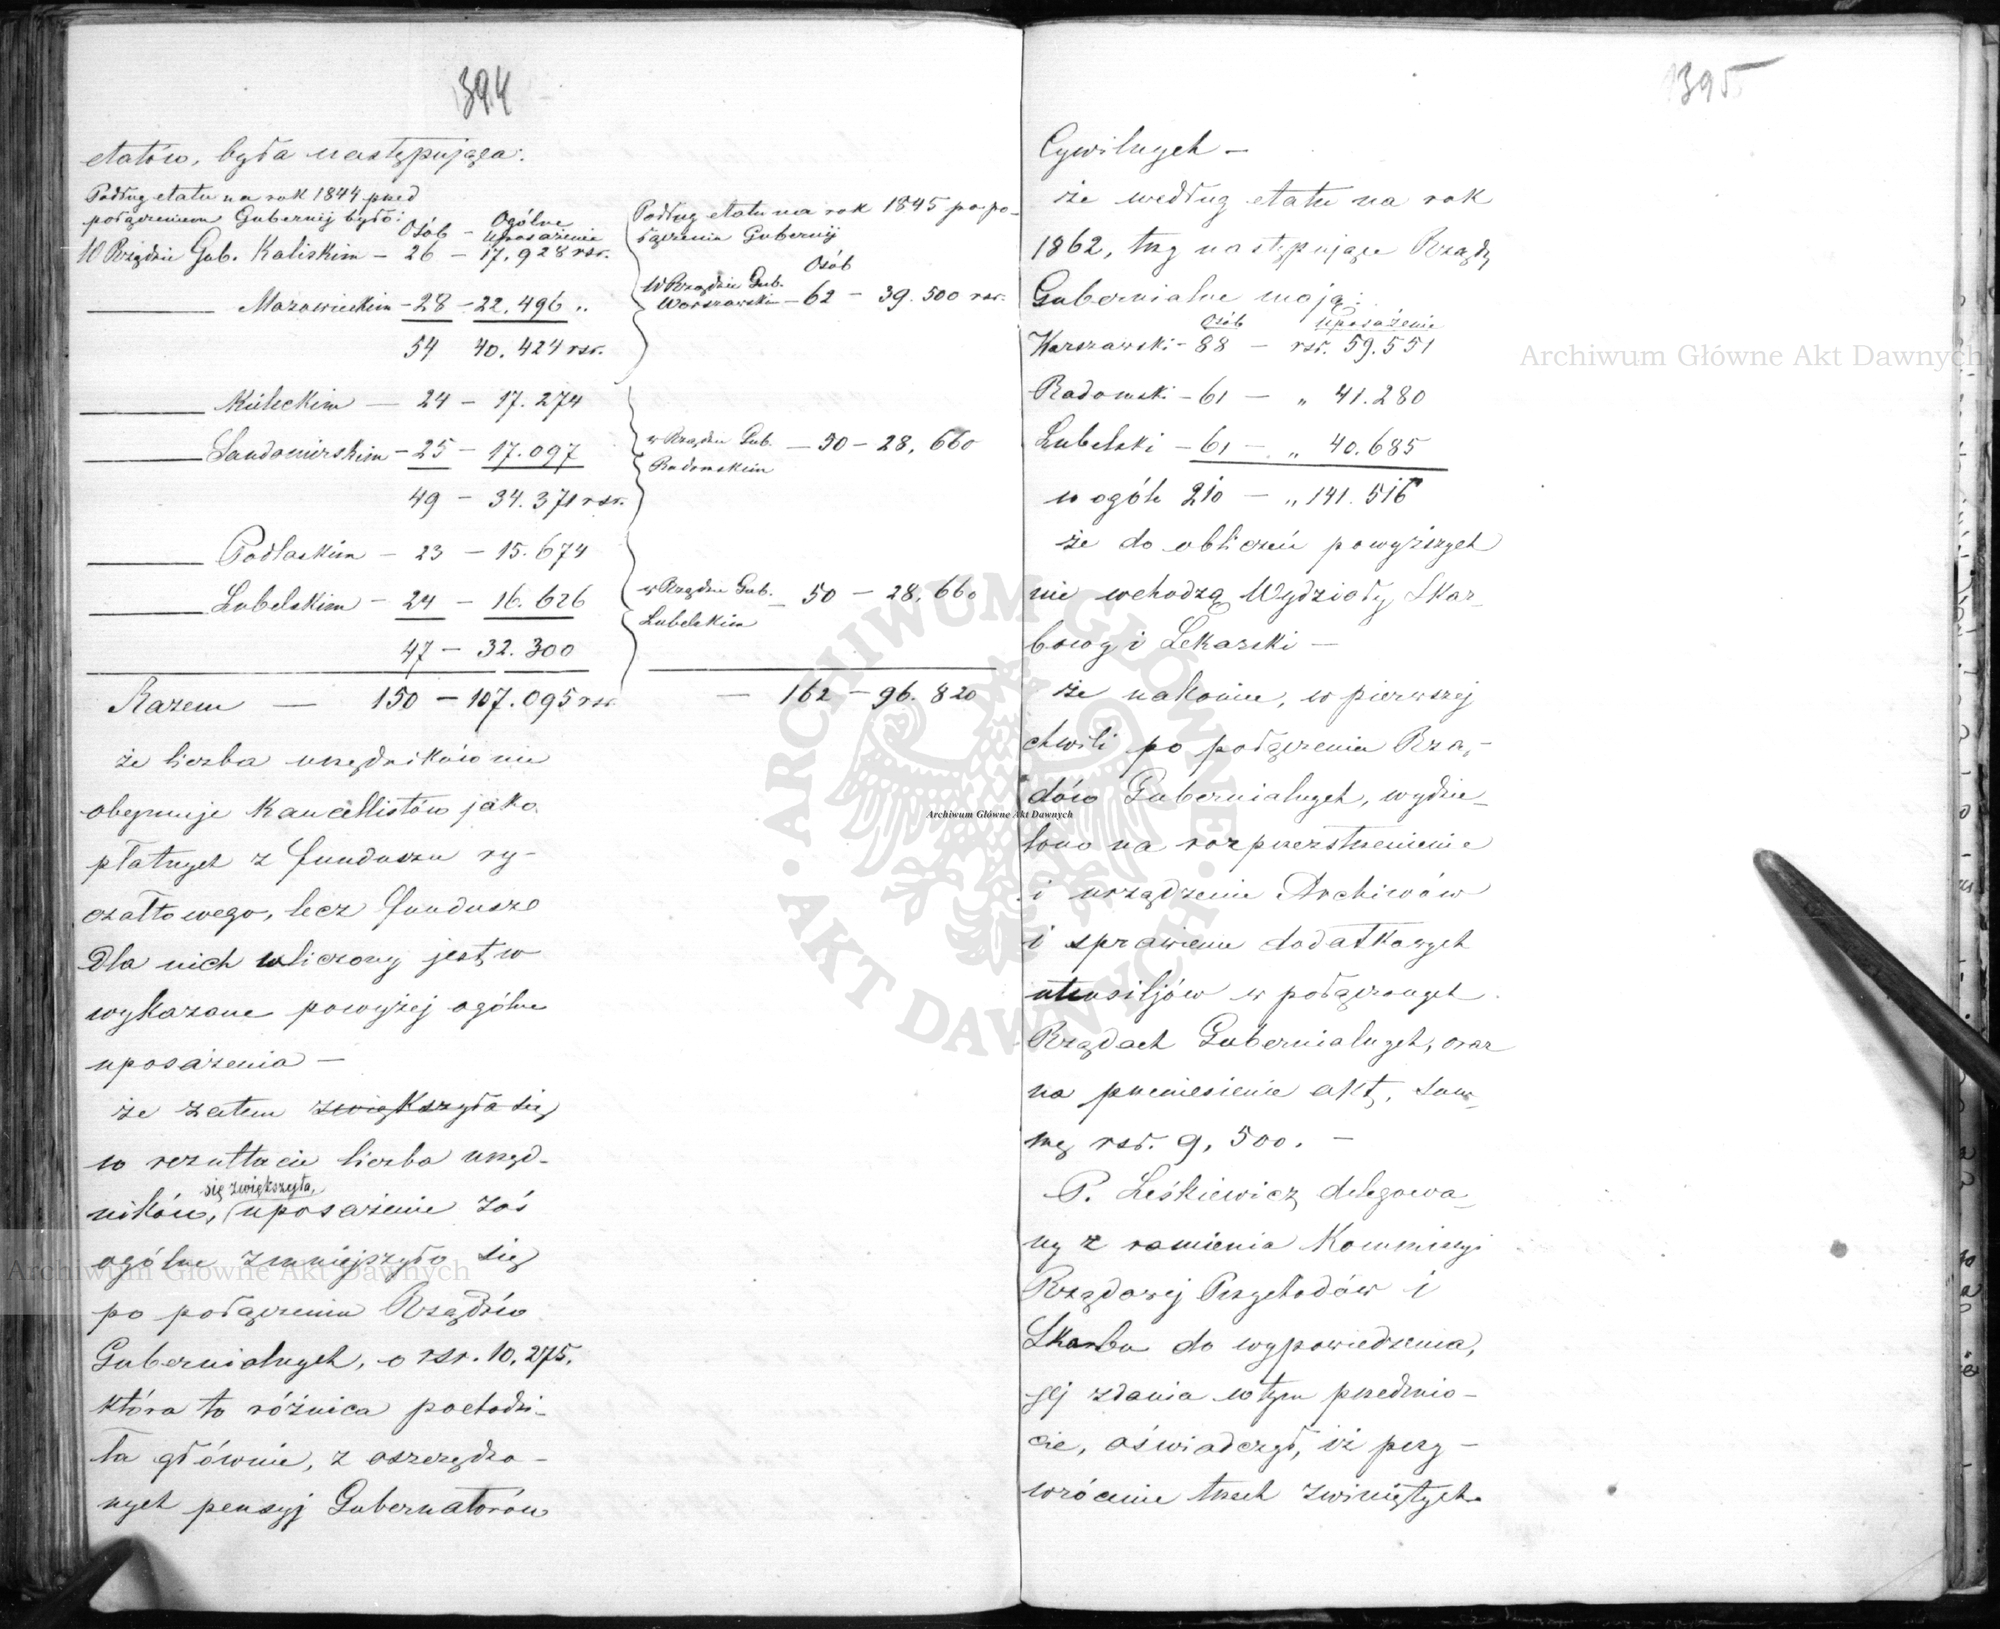 394
etatów, była następująca:
Podług etatu na rok 1844 przed
połączeniem Gubernij było:
Osób – Ogólne
uposażenie
W Rządzie Gub. Kaliskim – 26 – 17.928 rsr.
Mazowieckim – 28 – 22.496 „
54 40.424 rsr.
Kieleckim – 24 – 17.274
Sandomierskim – 25 – 17.097
49 – 34.371 rsr.
Podlaskim – 23 – 15.674
Lubelskim – 24 – 16.626
47 – 32.300
Razem — 150 – 107.095 rsr.
Podług etatu na rok 1845 po po-
łączeniu Gubernij
Osób
W Rządzie Gub.
Warszawskim – 62 – 39.500 rsr.
w Rządzie Gub. — 50 – 28.660
Radomskim
w Rządzie Gub. – 50 – 28.660
Lubelskim
— 162 – 96.820
że liczba urzędników nie
obejmuje Kancellistów jako
płatnych z funduszu ry-
czałtowego, lecz fundusz
dla nich wliczony jest w
wykazane powyżej ogólne
uposażenia –
że zatem zwiększyła się
w rezultacie liczba urzęd-
się zwiększyła,
ników, uposażenie zaś
ogólne zmniejszyło się
po połączeniu Rządów
Gubernialnych, o rsr. 10,275,
która to różnica pochodzi-
ła głównie, z oszczędzo-
nych pensyj Gubernatorów
395
Cywilnych –
że według etatu na rok
1862, trzy następujące Rządy
Gubernialne mają:
Osób Uposażenie
Warszawski – 88 – rsr. 59.551
Radomski – 61 – „ 41.280
Lubelski – 61 – „ 40.685
w ogóle 210 – „ 141.516
że do obliczeń powyższych
nie wchodzą Wydziały Skar-
bowy i Lekarski –
że nakoniec, w pierwszej
chwili po połączeniu Rzą-
dów Gubernialnych, wydzie-
lono na rozprzestrzenienie
i urządzenie Archiwów
i sprawienie dodatkowych
utensiljów w połączonych
Rządach Gubernialnych, oraz
na przeniesienie akt, sum-
mę rsr. 9,500. –
P. Leśkiewicz delegowa-
ny z ramienia Kommissyi
Rządowej Przychodów i
Skarbu do wypowiedzenia,
jej zdania w tym przedmio-
cie, oświadczył, iż przy-
wrócenie trzech zwiniętych
Archiwum Główne Akt Dawnych
Archiwum Główne Akt Dawnych
Archiwum Główne Akt Dawnych
ARCHIWUM GŁÓWNE · AKT DAWNYCH ·